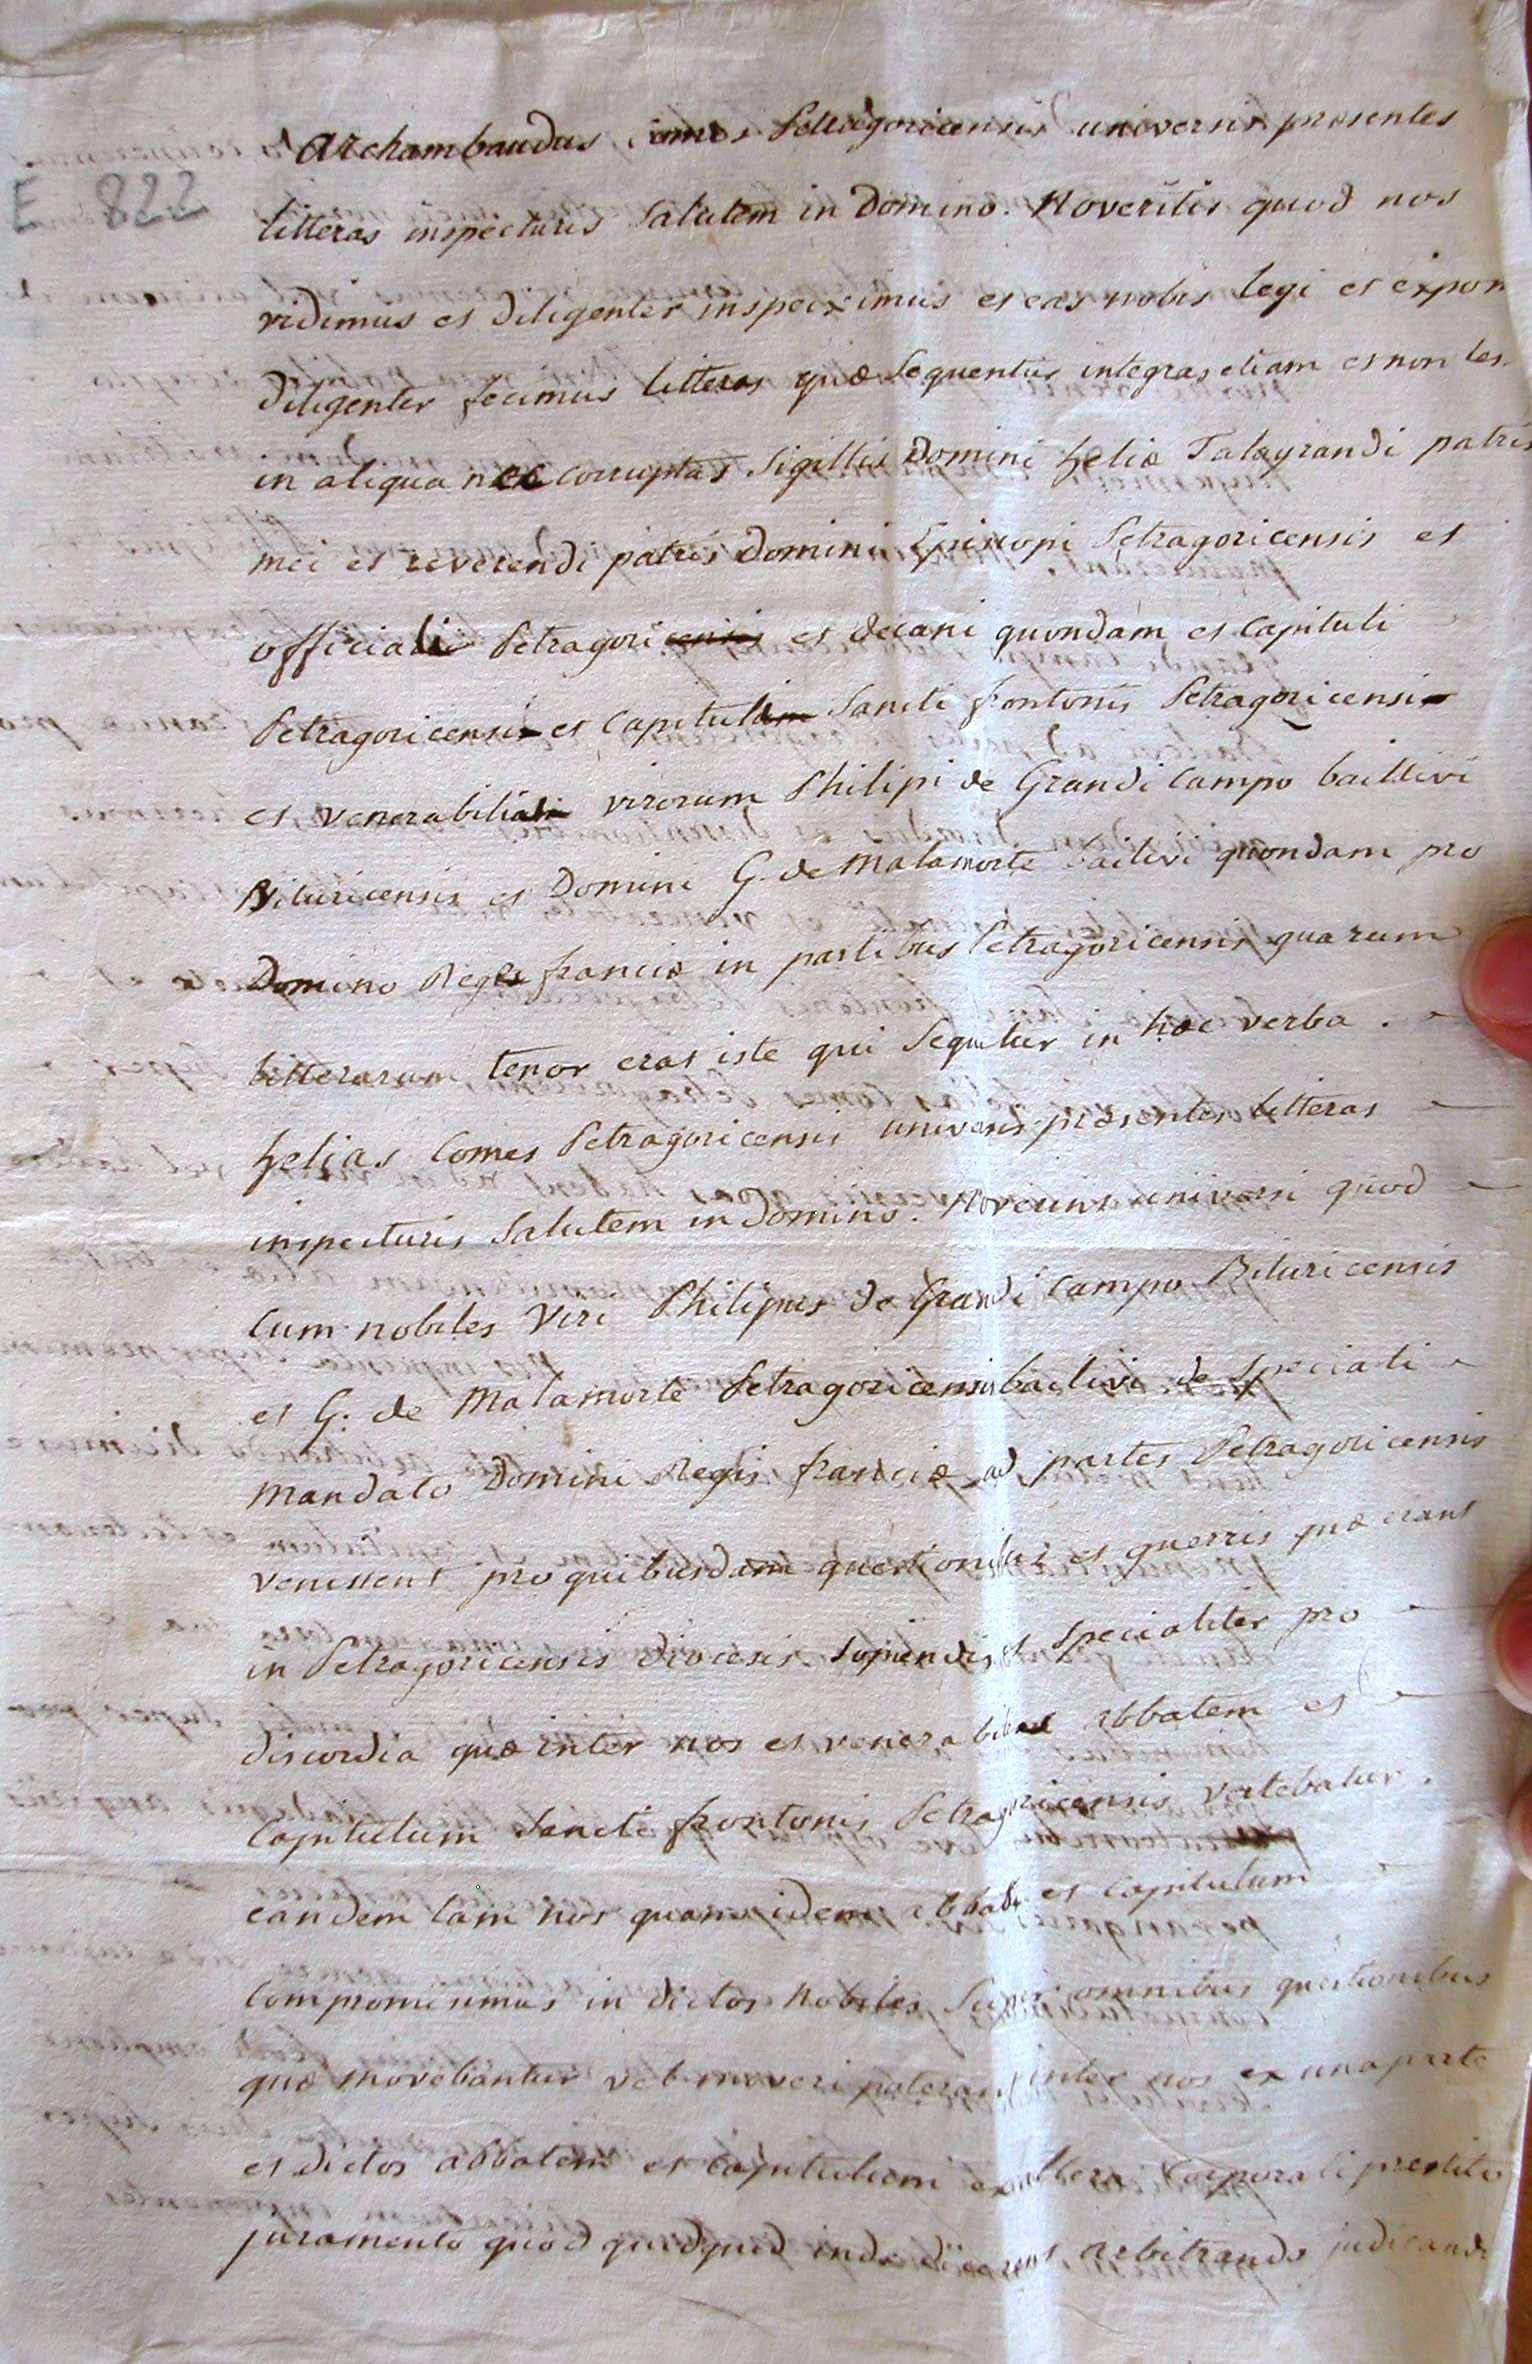 E 822
Archambaudus, Comes Petragoricensis universis presentes
litteras inspecturis Salutem in Domino. Noveritis quod nos
vidimus et diligenter inspeximus et eas nobis legi et expon
diligenter fecimus litteras quæ Sequentur integras etiam et non les
in aliqua nec corruptas Sigillis Domini heliæ Talayrandi patris
mei et reverendi patris Domini Episcopi Petragoricensis et
officialis Petragori et decani quondam et Capituli
Petragoricensis et Capituli Sancti frontonis Petragoricensis
et venerabilium virorum Philipi de Grandi Campo baillivi
Bituricensis et Domini G. de Malamorte bailivi quondam pro
Domino Rege franciæ in partibus Petragoricensis quarum
litterarum tenor erat iste qui Sequitur in hæc verba.
helias Comes Petragoricensis universis præsentes litteras
inspecturis Salutem in Domino. Noverint universi quod
Cum nobiles Viri Philipus de Grandi Campo Bituricensis
et G. de Malamorte Petragoricensis bailivi de Speciali
mandato Domini Regis franciæ ad partes Petragoricensis
venissent pro quibusdam questionibus et guerris quæ erant
in Petragoricensis diocesis Sopiendis et Specialiter pro
discordia quæ inter nos et venerabilem abbatem et
Capitulum Sancti frontonis Petragoricensis vertebatur.
eandem tam nos quam idem abbas et Capitulum
Compromisimus in dictos Nobiles Super omnibus questionibus
quæ movebantur vel moveri poterant inter nos ex una parte
et dictos abbatem et Capitulum ex altera Corporali prestito
juramento quod quidquid inde dicerent arbitrando judicando